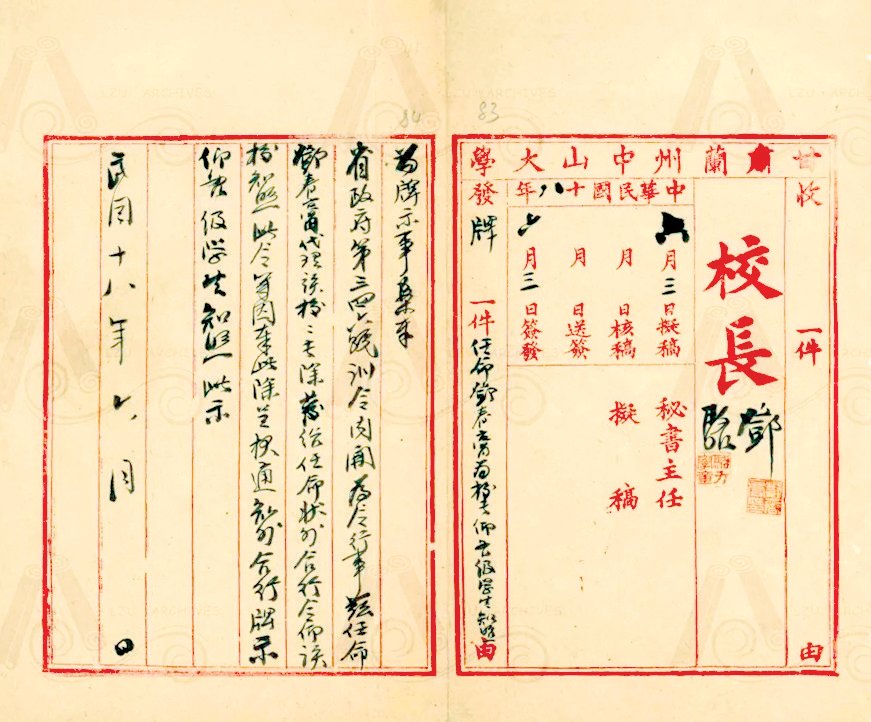 83
84
甘肅蘭州中山大學
收 一件 由
校長
鄧
駱
秘書主任
擬稿
中華民國十八年
六月三日擬稿
月 日核稿
月 日送簽
六月三日簽發
發牌 一件 任命鄧春膏為校長仰各級學生知照 由
為牌示事案奉
省政府第三四六號訓令內開為令行事茲任命
鄧春膏代理該校校長除發給任命狀外合行令仰該
校知照此令等因奉此除呈複通知外合行牌示
仰各級學生知照此示
民國十八年六月 日